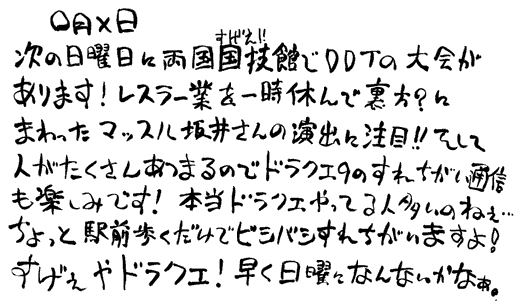 〇月×日
すげえ!!
次の日曜日に両国国技館でDDTの大会が
あります!レスラー業を一時休んで裏方?に
まわったマッスル坂井さんの演出に注目!!そして
人がたくさんあつまるのでドラクエ9のすれちがい通信
も楽しみです! 本当ドラクエやってる人多いのねぇ…
ちょっと駅前歩くだけでビシバシすれちがいますよ!
すげぇやドラクエ!早く日曜になんないかなぁ。